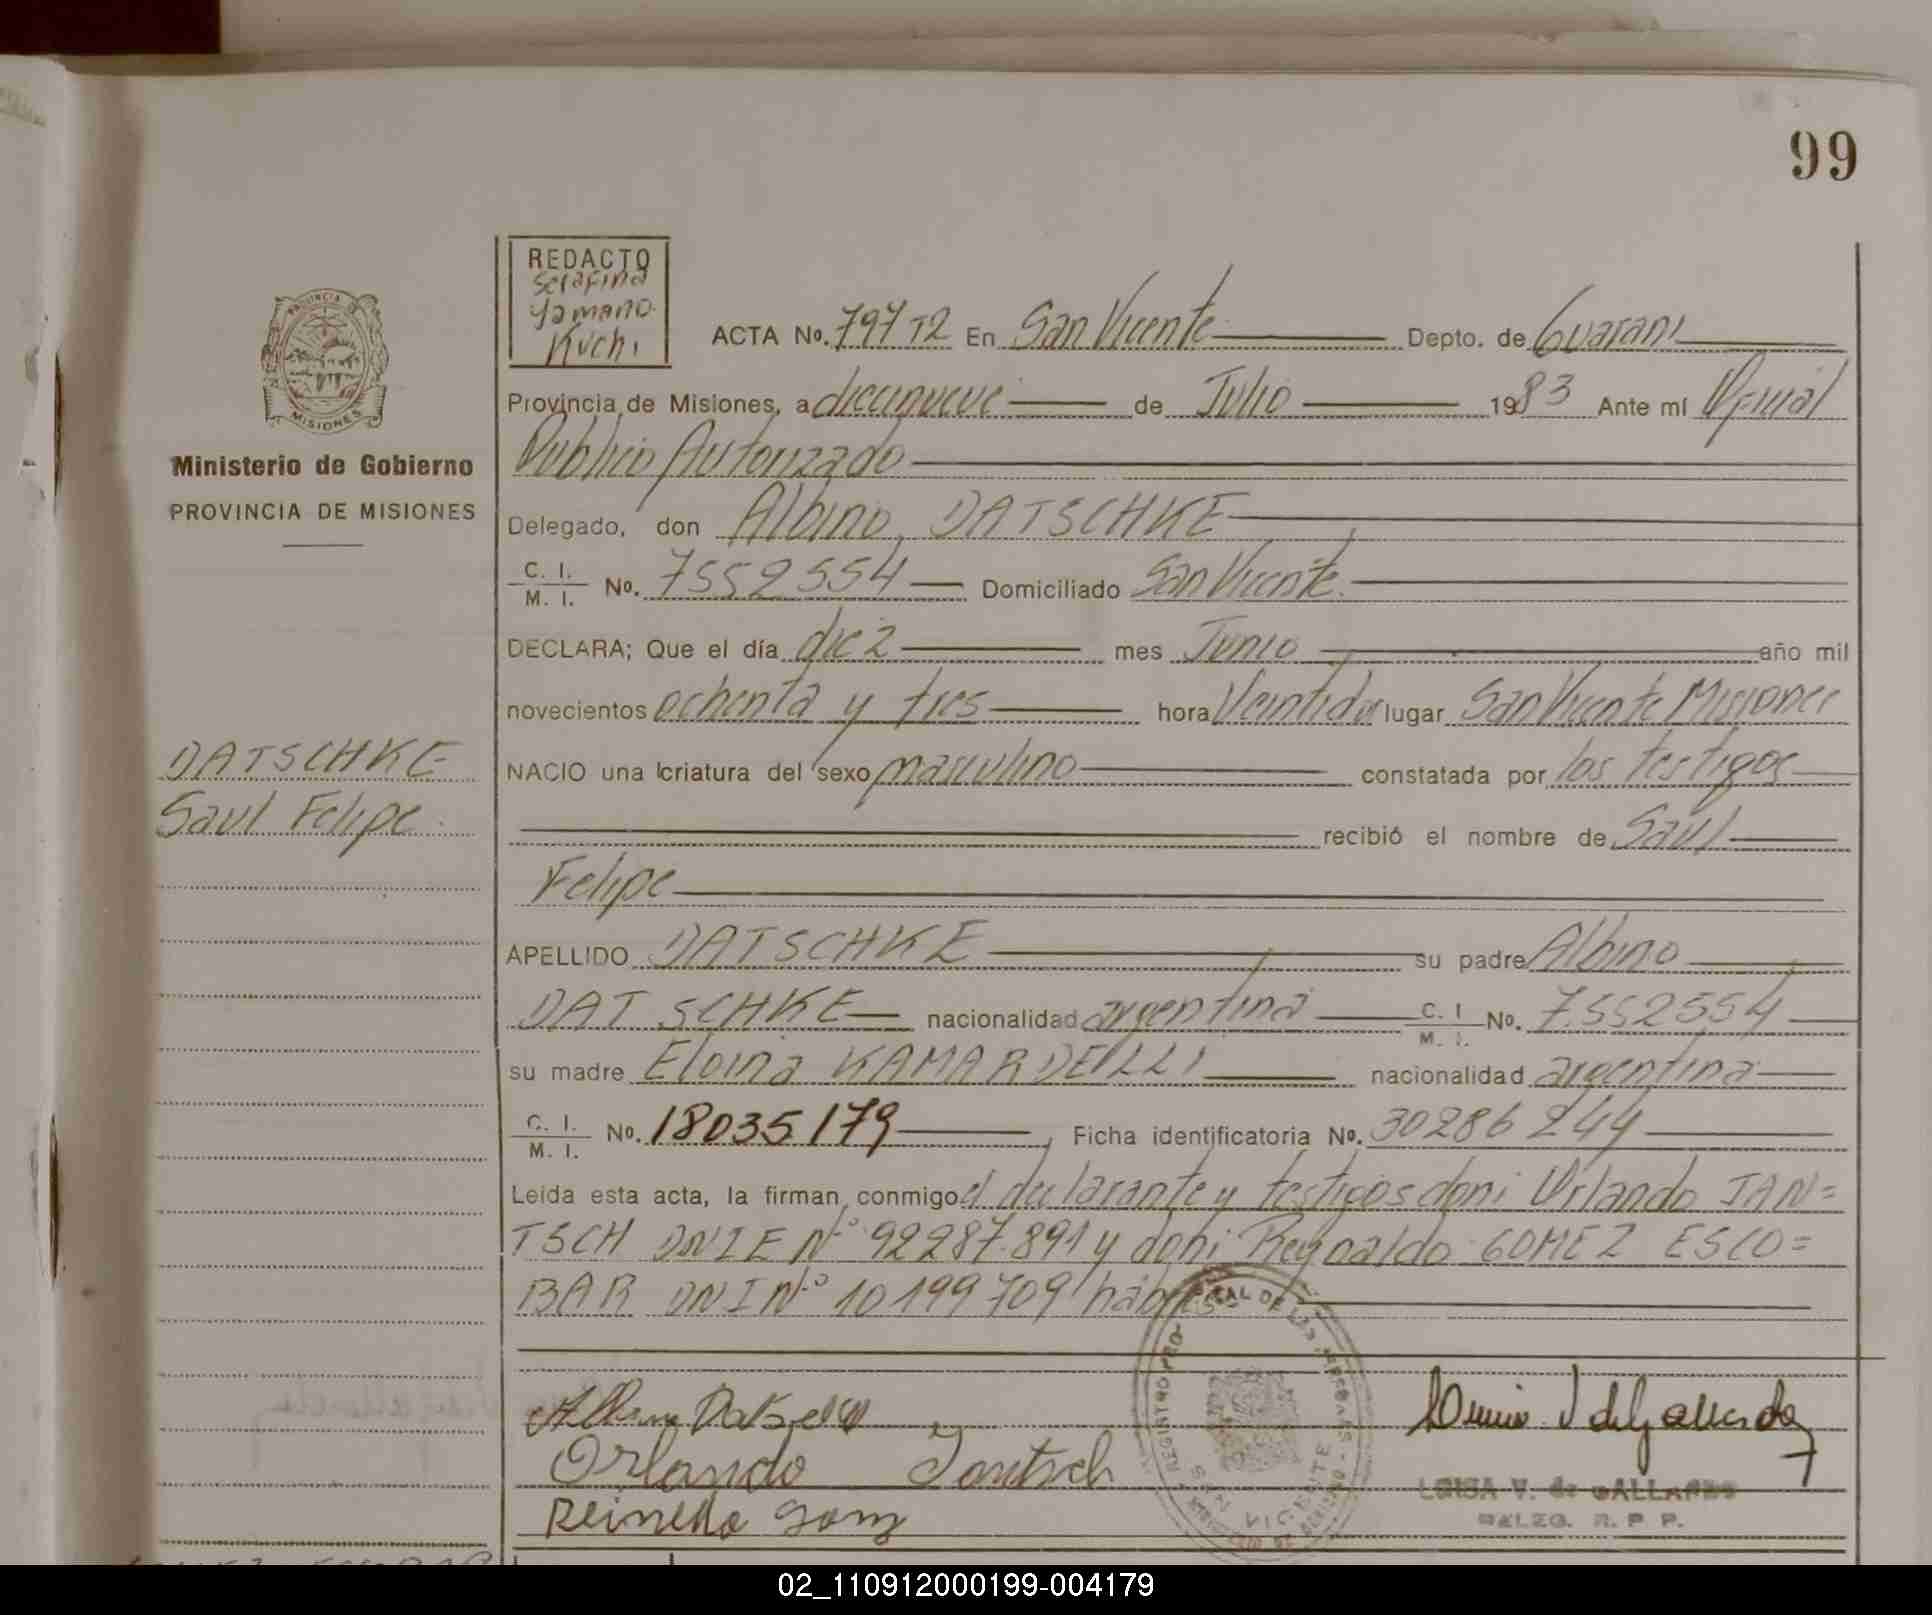 99
REDACTO
Serafina
Yamano
Kuchi
ACTA No. 797 T2 En San Vicente Depto. de Guarani
Provincia de Misiones, a diecinueve de Julio 1983 Ante mí Oficial
Publico Autorizado
Delegado, don Albino DATSCHKE
C. I.
M. I. No. 7552554 Domiciliado San Vicente.
DECLARA; Que el día diez mes Junio año mil
novecientos ochenta y tres hora Veintidos lugar San Vicente Misiones
NACIO una criatura del sexo masculino constatada por los testigos
recibió el nombre de Saul
Felipe
APELLIDO DATSCHKE su padre Albino
DATSCHKE nacionalidad argentina C. I
M. I. No. 7.552554
su madre Eloina KAMARDELLI nacionalidad argentina
C. I.
M. I. No. 18035179, Ficha identificatoria No. 30286244
Leida esta acta, la firman conmigo el declarante y testigos doni Orlando JAN=
TSCH DNIE Nº 92287.891 y doni Reynaldo GOMEZ ESCO=
BAR DNI Nº 10199709 hábiles=
Orlando Jantsch
LUISA V. de GALLARDO
DELEG. R. P. P.
REGISTRO PROVINCIAL DE LAS PERSONAS
SAN VICENTE
PROVINCIA DE
MISIONES
Ministerio de Gobierno
PROVINCIA DE MISIONES
DATSCHKE
Saul Felipe
02_110912000199-004179